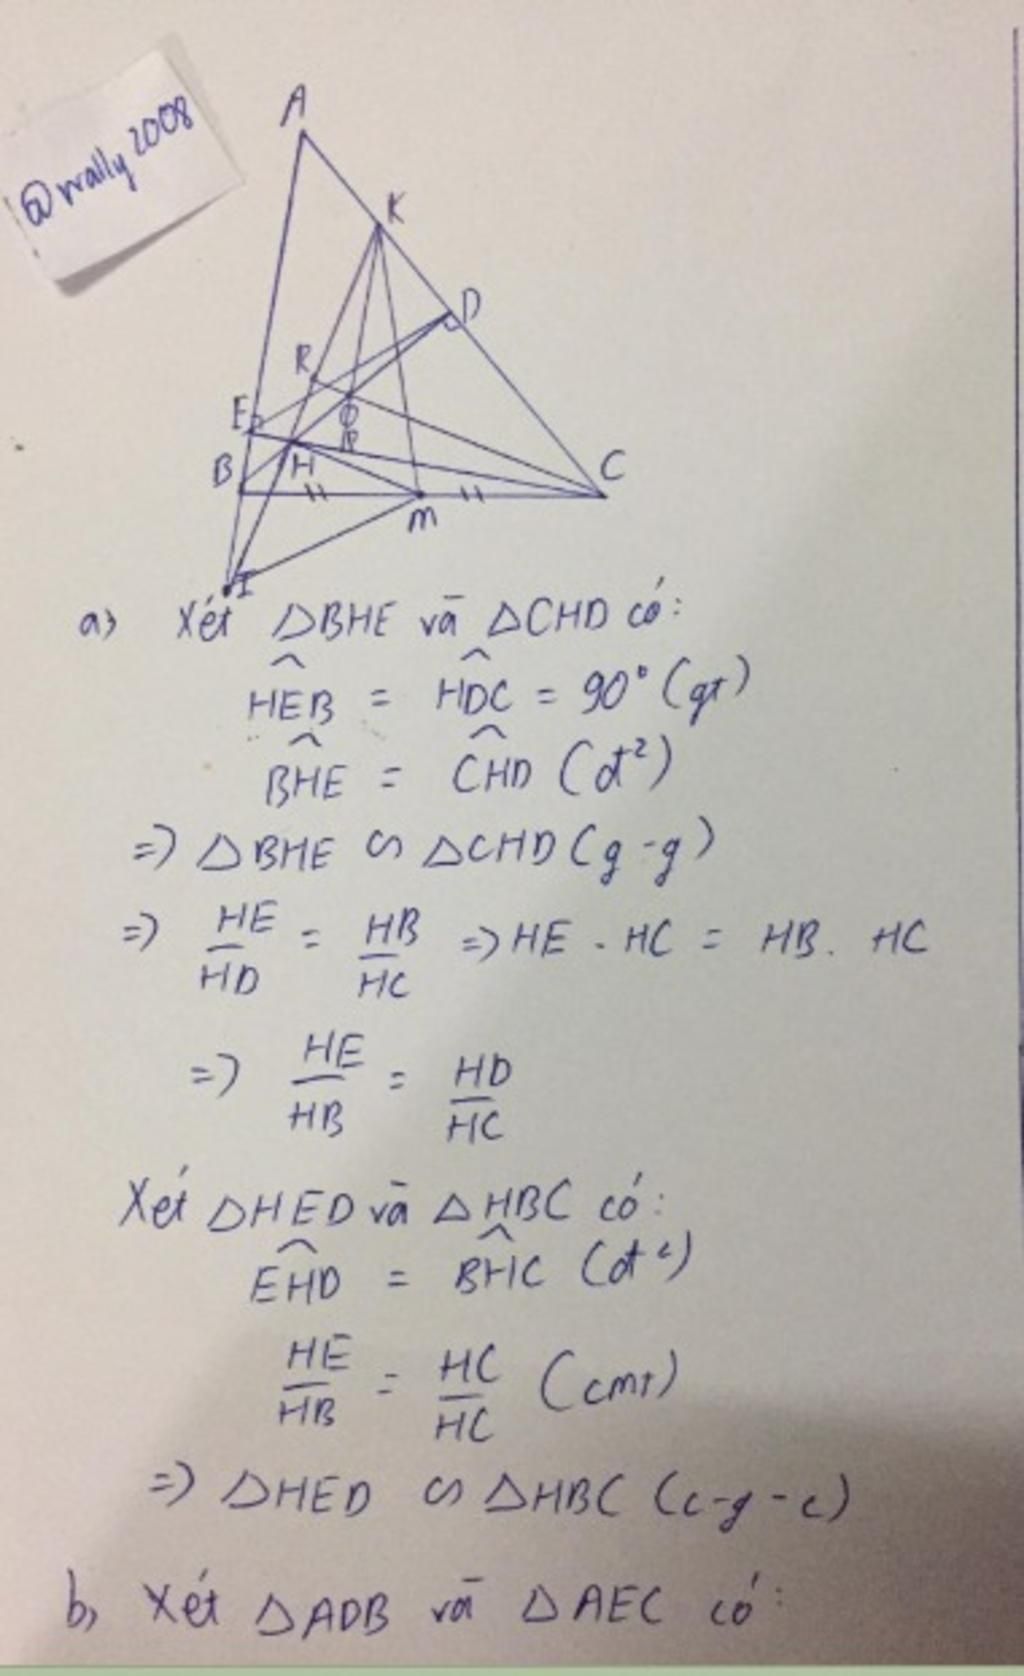 @wally2008
A
K
D
R
E
O
B
H
C
M
I
a) Xét ΔBHE và ΔCHD có:
HEB^ = HDC^ = 90° (gt)
BHE^ = CHD^ (đ²)
=> ΔBHE ∽ ΔCHD (g-g)
=> HE/HD = HB/HC => HE . HC = HB . HC
=> HE/HB = HD/HC
Xét ΔHED và ΔHBC có:
EHD^ = BHC^ (đ²)
HE/HB = HC/HC (cmt)
=> ΔHED ∽ ΔHBC (c-g-c)
b, Xét ΔADB và ΔAEC có: